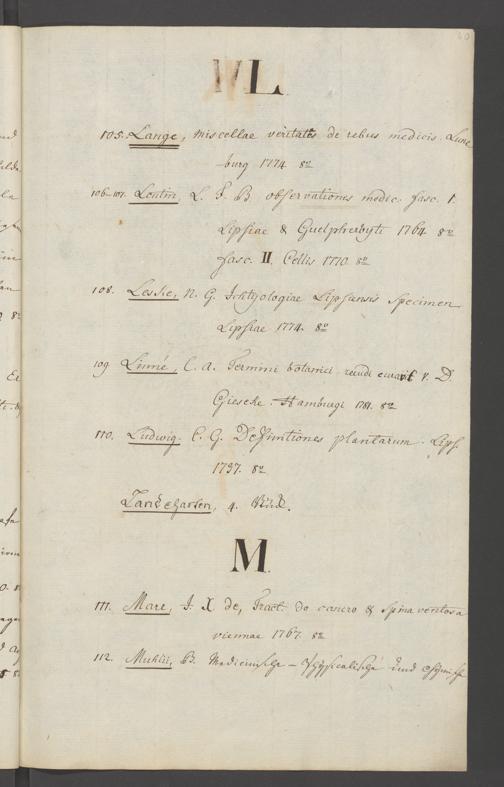 L.
105. Lange, miscellae veritates de rebus medicis. Lune
burg 1774. 8º
106-107. Lentin, L. F. B. observationes medic. fasc. 1.
Lipsiae & Guelpherbyti 1764. 8º
fasc. II. Cellis 1770. 8º
108. Leske, N. G. Ichtyologiae Lipsiensis Specimen
Lipsiae 1774. 8º
109. Linné, C. a. Termini botanici curavit P. D.
Gieseke. Hamburgi 1781. 8º
110. Ludwig. C. G. Definitiones plantarum. Lips.
1737. 8º
Landcharten, 4. Stück.
M.
111. Mare, J. X de, Tract. de cancro & Spina ventosa
viennae 1767. 8º
112. B. Medicinische – Physicalische und